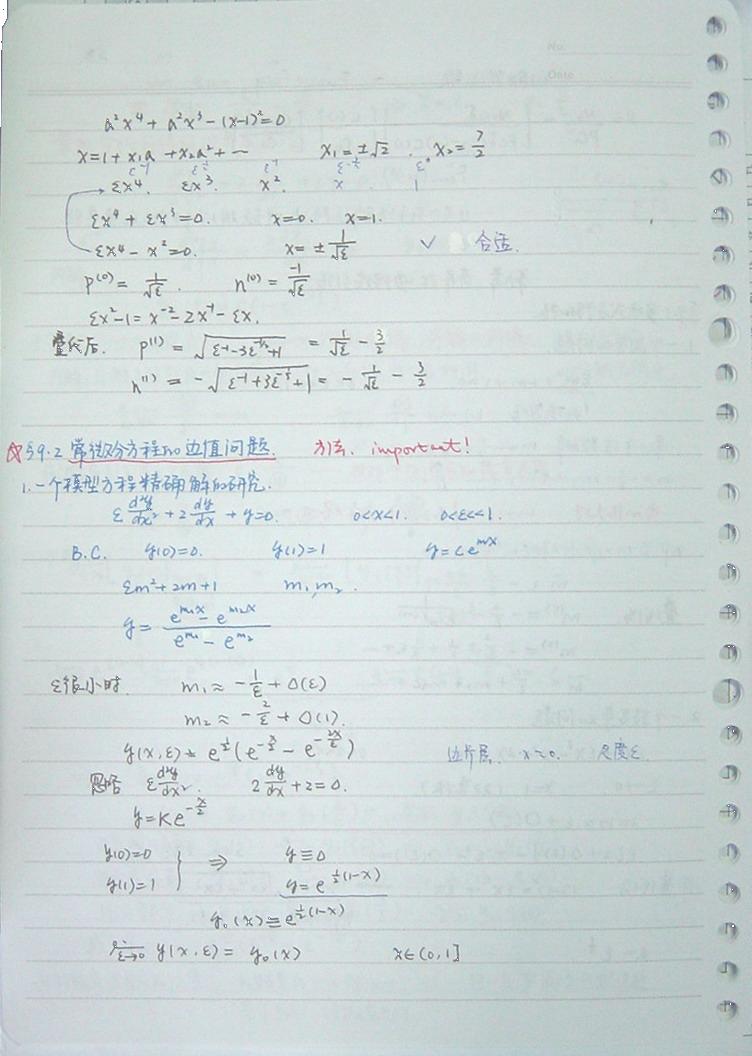 No.
Date
a²x⁴ + a²x³ - (x-1)² = 0
x = 1 + x₁a + x₂a² + … x₁ = ±√2 . x₂ = 7/2
ε⁻¹ ε⁻¹ ε^{-1/2} ε⁰
εx⁴. εx³. x². x 1
εx⁴ + εx³ = 0. x=0. x=1.
εx⁴ - x² = 0. x = ± 1/√ε √ 合适.
p⁽⁰⁾ = 1/√ε . n⁽⁰⁾ = -1/√ε
εx² - 1 = x⁻² - 2x⁻¹ - εx.
迭代后. p⁽¹⁾ = √(ε⁻¹ - 3ε^{-1/2} + 1) = 1/√ε - 3/2
n⁽¹⁾ = -√(ε⁻¹ + 3ε^{-1/2} + 1) = - 1/√ε - 3/2
☆ §9.2 常微分方程的边值问题. 方法. important!
1. 一个模型方程精确解的研究.
ε d²y/dx² + 2 dy/dx + y = 0. 0<x<1. 0<ε<<1.
B.C. y(0)=0. y(1)=1 y = ce^{mx}
εm² + 2m + 1 m₁, m₂.
y = (e^{m₁x} - e^{m₂x}) / (e^{m₁} - e^{m₂})
ε很小时. m₁ ≈ - 1/ε + O(ε)
m₂ ≈ - 2/ε + O(1).
y(x,ε) ≈ e^{1/2}(e^{-x/2} - e^{-2x/ε}) 边界层. x~0. 尺度ε.
忽略 ε d²y/dx². 2 dy/dx + 2 = 0.
y = Ke^{-x/2}
y(0)=0 } ⇒ y ≡ 0
y(1)=1 y = e^{1/2(1-x)}
y₀(x) ≡ e^{1/2(1-x)}
lim ε→0 y(x,ε) = y₀(x) x∈(0,1]